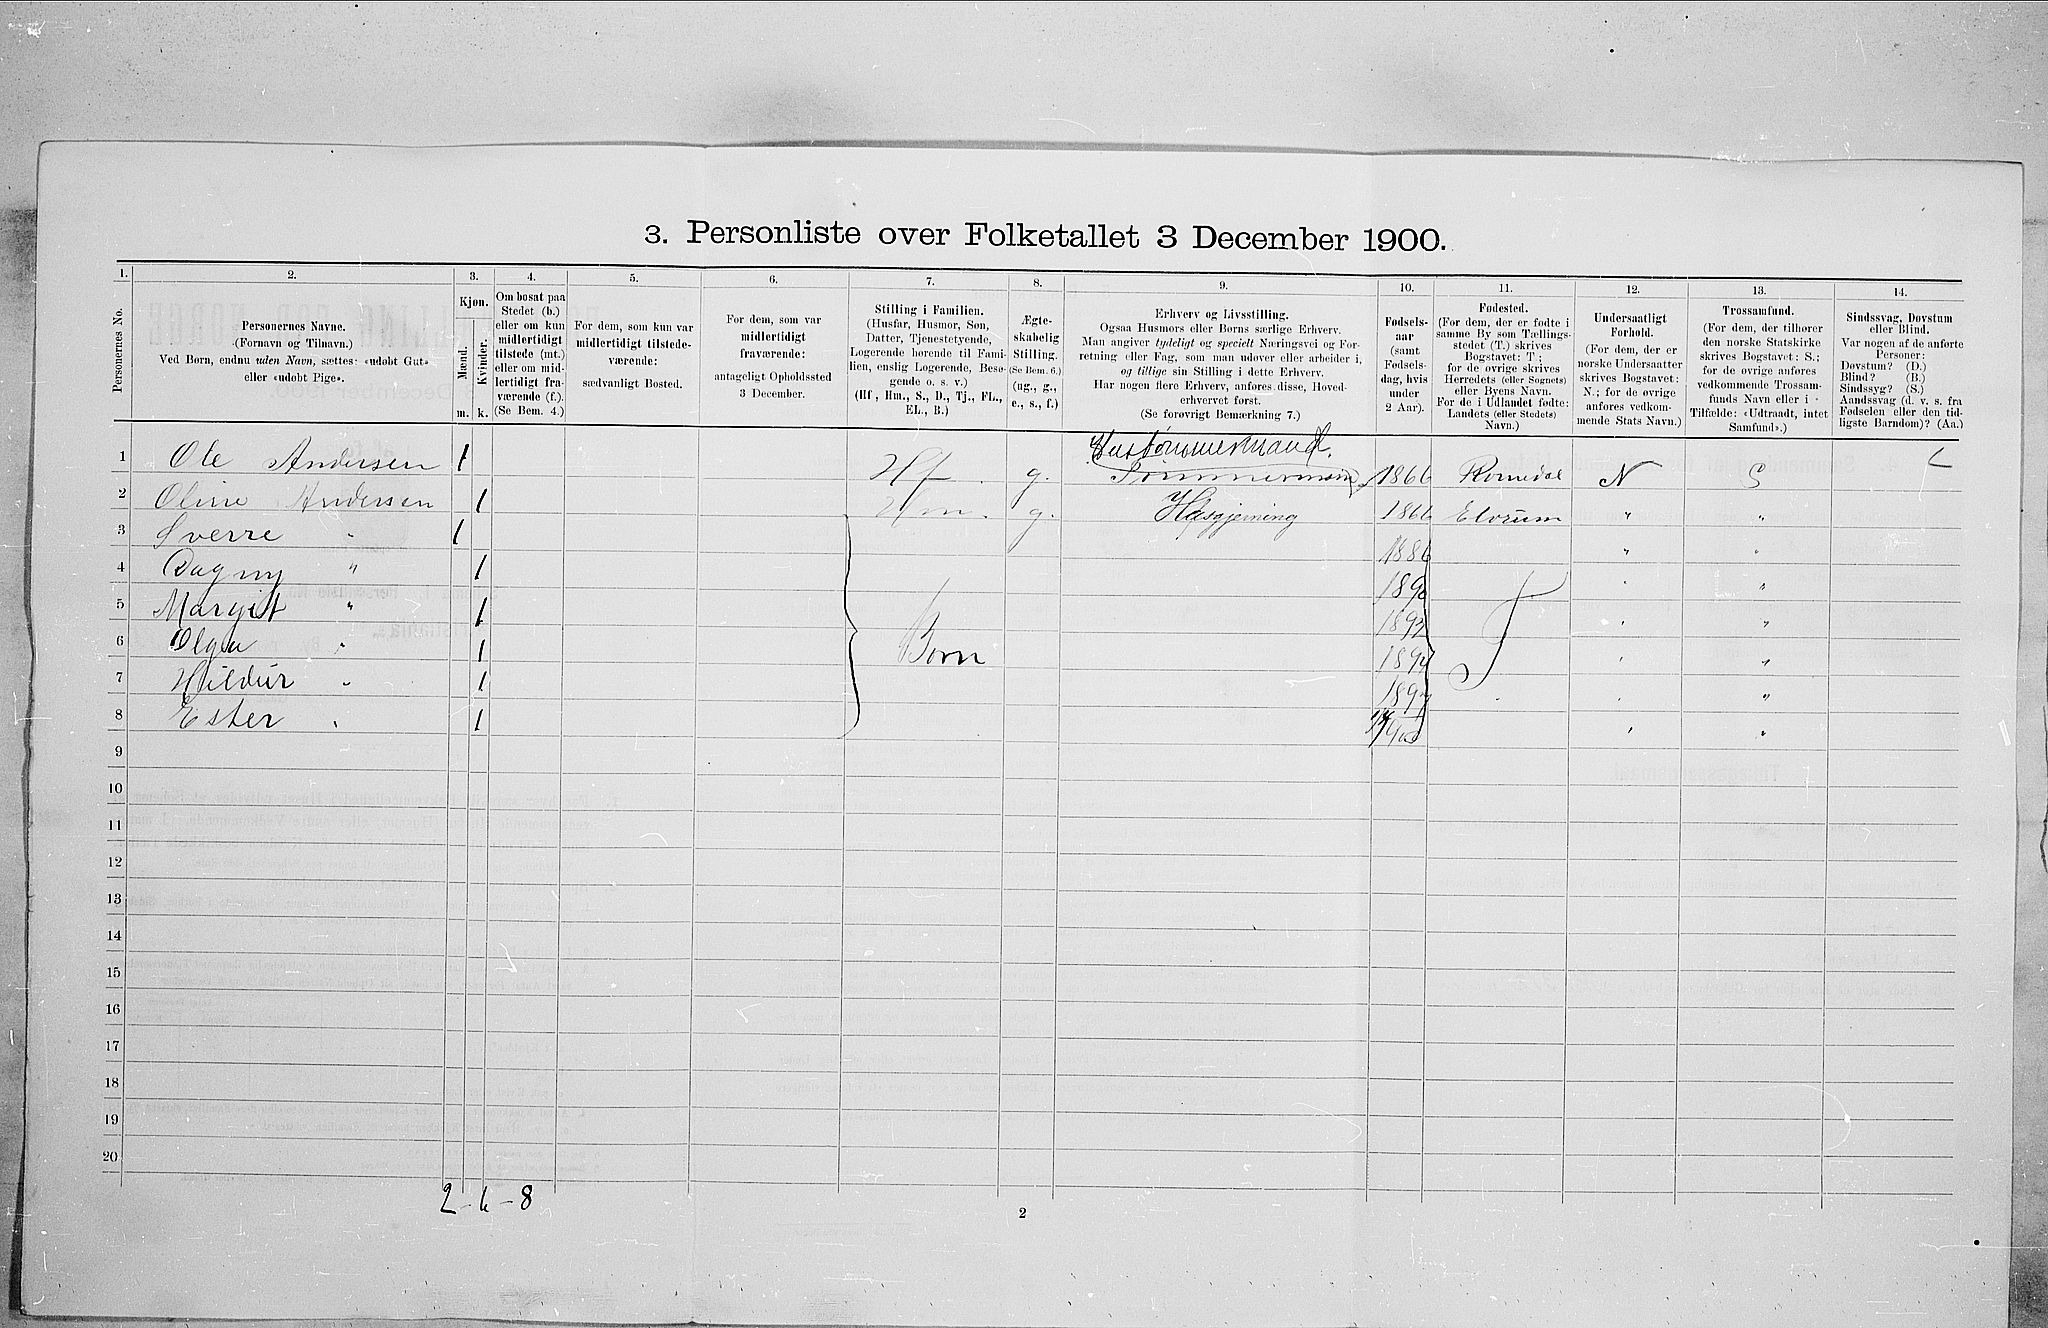 3. Personliste over Folketallet 3 December 1900.
1. 2. 3. 4. 5. 6. 7. 8. 9. 10. 11. 12. 13. 14.
Personernes No.
Personernes Navne.
(Fornavn og Tilnavn.)
Ved Børn, endnu uden Navn, sættes: «udøbt Gut»
eller «udøbt Pige».
Kjøn.
Mænd.
Kvinder.
m. k.
Om bosat paa
Stedet (b.)
eller om kun
midlertidigt
tilstede (mt.)
eller om mid-
lertidigt fra-
værende (f.).
(Se Bem. 4.)
For dem, som kun var
midlertidigt tilstede-
værende:
sædvanligt Bosted.
For dem, som var
midlertidigt
fraværende:
antageligt Opholdssted
3 December.
Stilling i Familien.
(Husfar, Husmor, Søn,
Datter, Tjenestetyende,
Logerende hørende til Fami-
lien, enslig Logerende, Besø-
gende o. s. v.)
(Hf, Hm., S., D., Tj., FL.,
EL., B.)
Ægte-
skabelig
Stilling.
(Se Bem. 6.)
(ug., g.,
e., s., f.)
Erhverv og Livsstilling.
Ogsaa Husmors eller Børns særlige Erhverv.
Man angiver tydeligt og specielt Næringsvei og For-
retning eller Fag, som man udøver eller arbeider i,
og tillige sin Stilling i dette Erhverv.
Har nogen flere Erhverv, anføres disse, Hoved-
erhvervet først.
(Se forøvrigt Bemærkning 7.)
Fødsels-
aar
(samt
Fødsels-
dag, hvis
under
2 Aar).
Fødested.
(For dem, der er fødte i
samme By som Tællings-
stedet (T.) skrives
Bogstavet: T.;
for de øvrige skrives
Herredets (eller Sognets)
eller Byens Navn.
For de i Udlandet fødte:
Landets (eller Stedets)
Navn.)
Undersaatligt
Forhold.
(For dem, der er
norske Undersaatter
skrives Bogstavet:
N.; for de øvrige
anføres vedkom-
mende Stats Navn.)
Trossamfund.
(For dem, der tilhører
den norske Statskirke
skrives Bogstavet: S.;
for de øvrige anføres
vedkommende Trossam-
funds Navn eller i
Tilfælde: «Udtraadt, intet
Samfund».)
Sindssvag, Døvstum
eller Blind.
Var nogen af de anførte
Personer:
Døvstum? (D.)
Blind? (B.)
Sindssyg? (S.)
Aandssvag (d. v. s. fra
Fødselen eller den tid-
ligste Barndom)? (Aa.)
Hustømmermand.
1 Ole Andersen 1 Hf. g. Tømmermand 1866 Romedal N S
2 Oline Andersen 1 Hm. g. Husgjerning 1866 Elvrum " "
3 Sverre " 1 1886 " "
4 Dagny " 1 1890 " "
5 Margit " 1 " "
6 Olga " 1 Børn T " "
7 Hildur " 1 1897 " "
8 Ester " 1 " "
9
10
11
12
13
14
15
16
17
18
19
20
2-6-8
2